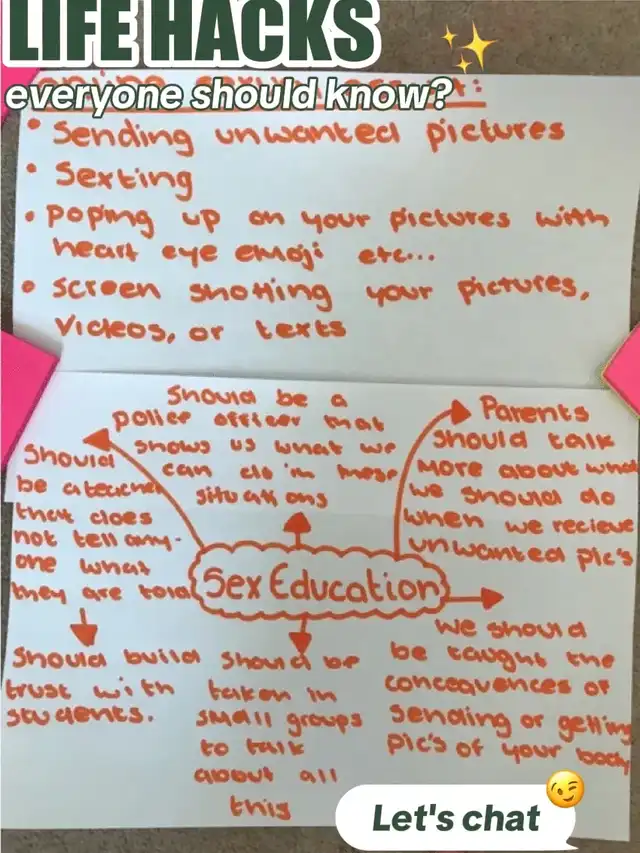 LIFE HACKS
everyone should know?
• Sending unwanted pictures
• Sexting
• Poping up on your pictures with
heart eye emoji etc...
• screen shotting your pictures,
Videos, or texts
Should be a
police officer that
shows us what we
can do in these
situations
Parents
should talk
More about what
we should do
when we recieve
unwanted pic's
Should
be a teacher
that does
not tell any-
one what
they are told
Sex Education
Should build
trust with
students.
Should be
taken in
small groups
to talk
about all
this
We should
be taught the
concequences of
sending or getting
pic's of your body
Let's chat